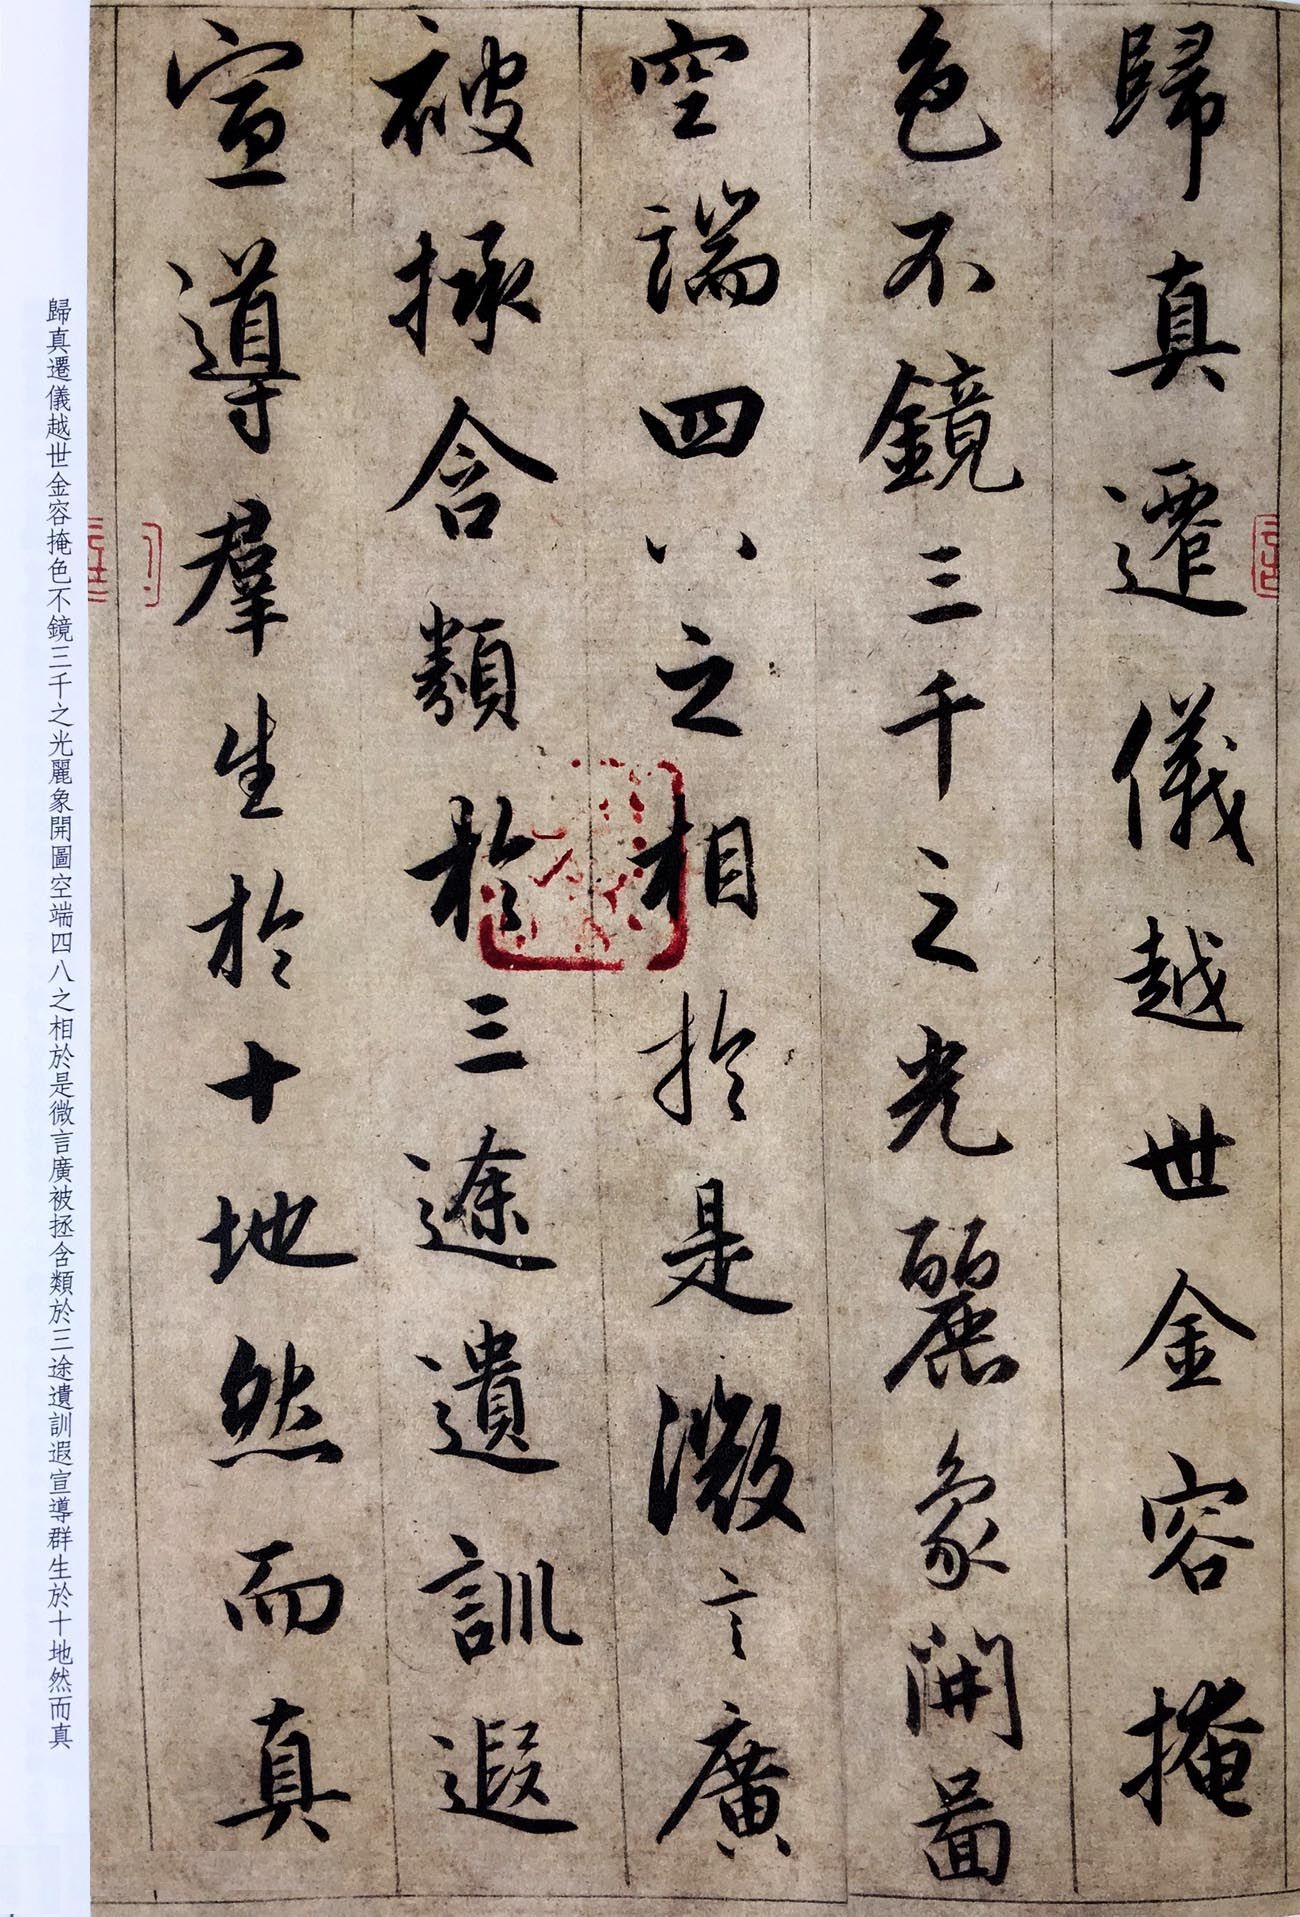 歸真遷儀越世金容掩
色不鏡三千之光麗象開圖
空端四八之相於是微言廣
被拯含類於三途遺訓遐
宣導羣生於十地然而真
歸真遷儀越世金容掩色不鏡三千之光麗象開圖空端四八之相於是微言廣被拯含類於三途遺訓遐宣導群生於十地然而真